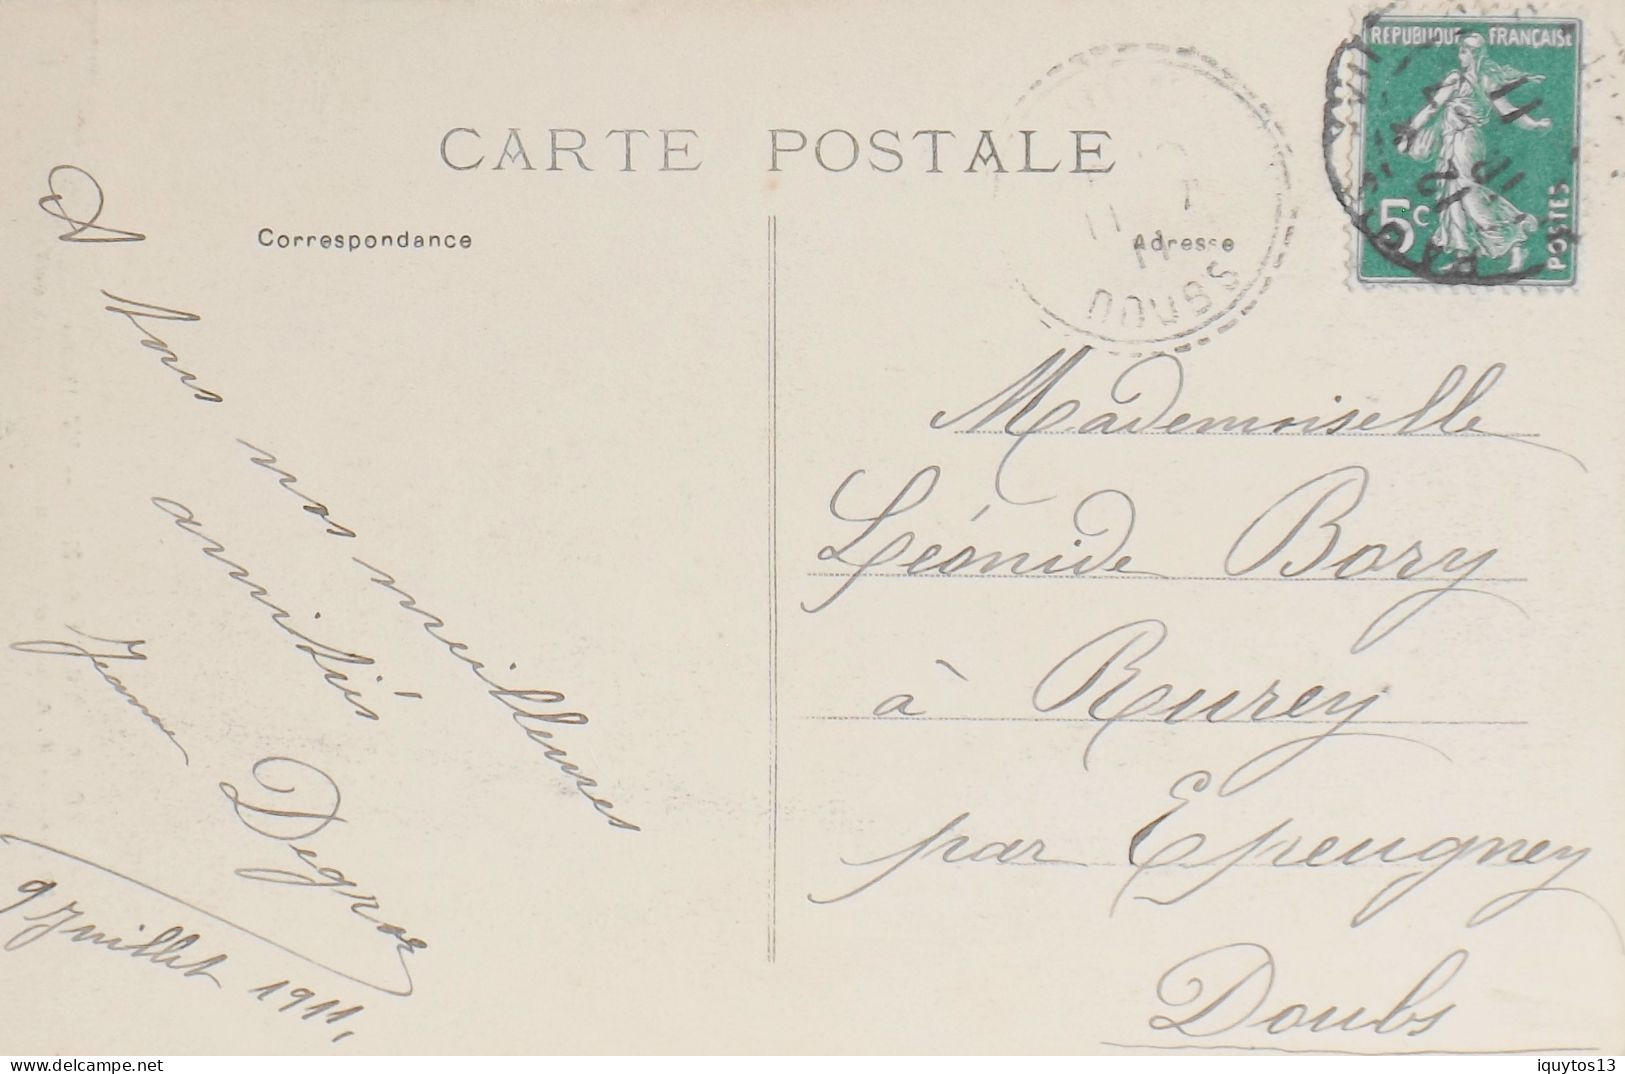 CARTE POSTALE
Correspondance
Adresse
RÉPUBLIQUE FRANÇAISE
5c
POSTES
11
DOUBS
A tous
nos meilleures
amitiés
Jeanne Degroz
9 Juillet 1911,
Mademoiselle
Léonide Bory
à Rurey
par Epeugney
Doubs
delcampe.net
iquytos13